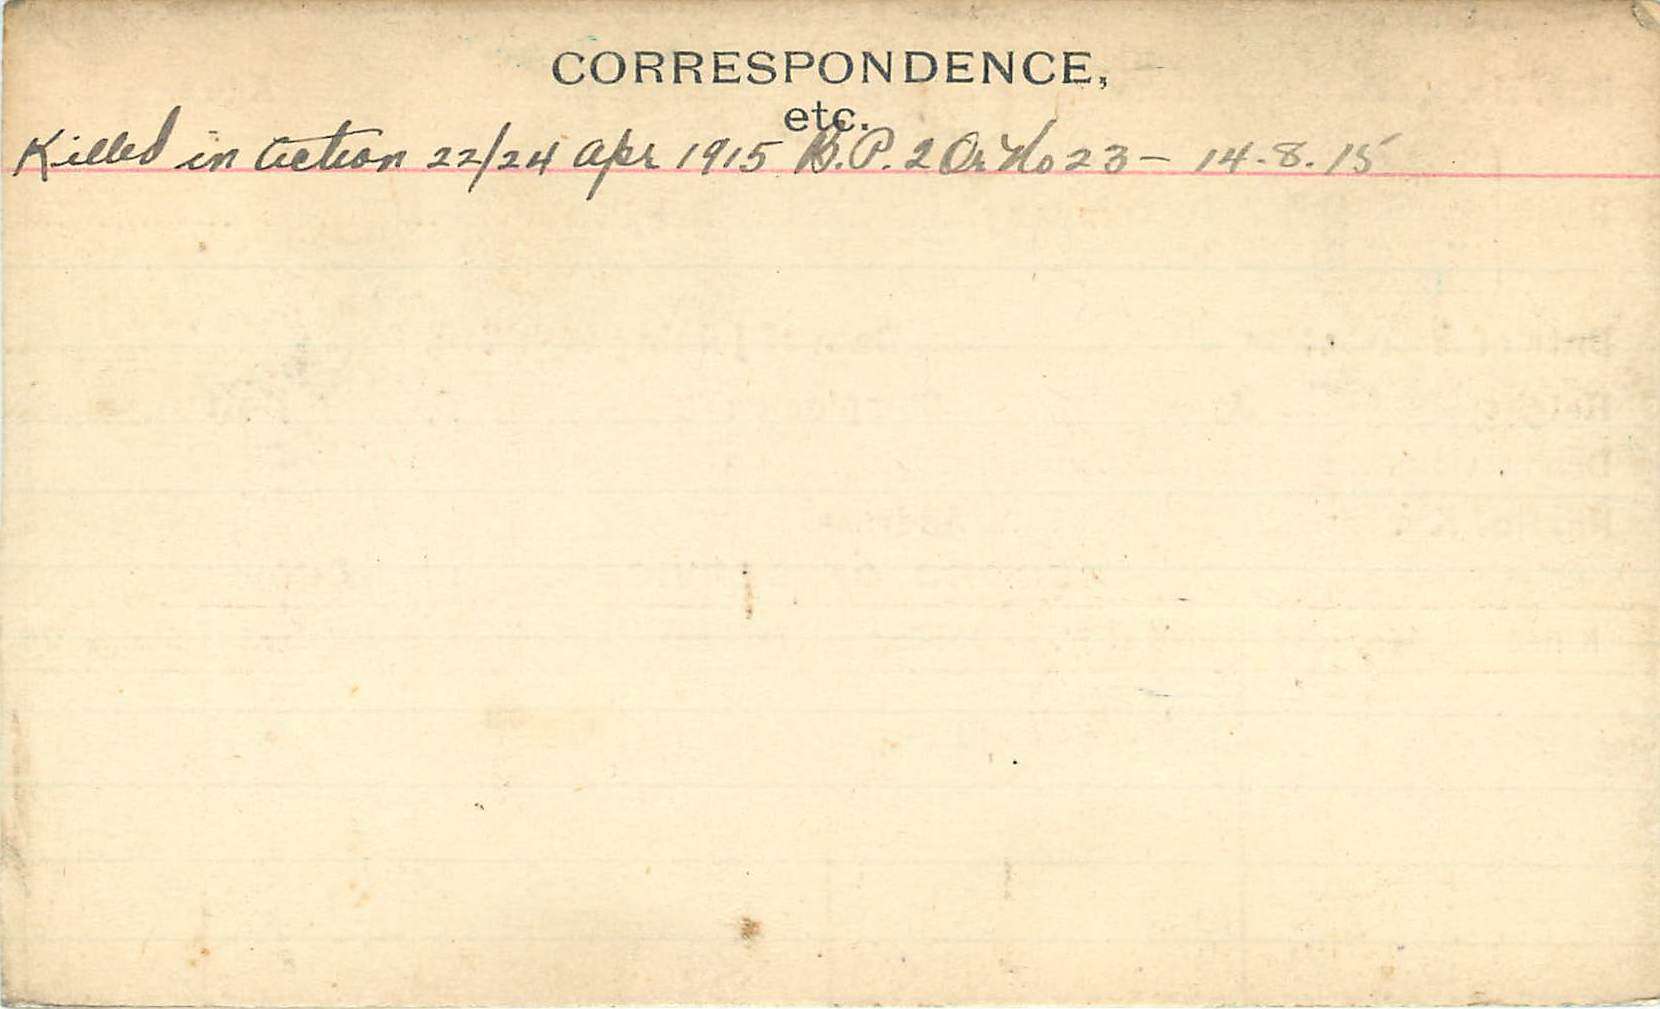 CORRESPONDENCE,
etc.
Killed in action 22/24 Apr 1915 B.P. 2 Or No 23 - 14.8.15